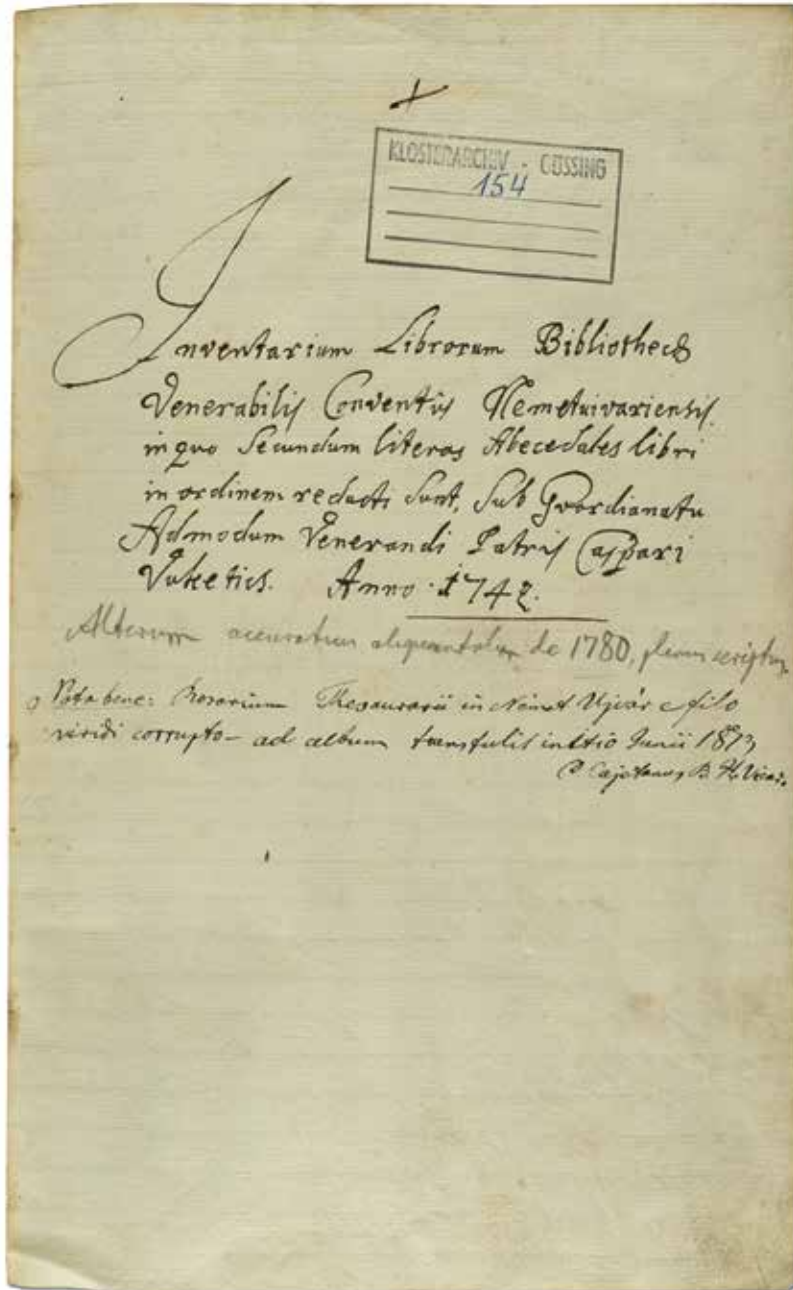 KLOSTERARCHIV - GÜSSING
154
Inventarium Librorum Bibliothecæ
Venerabilis Conventûs Nemetuivariensis.
in quo Secundum literas Abecedales libri
in ordinem redacti sunt, sub Gvardianatu
Admodum Venerandi Patris Caspari
Vuketics. Anno 1742.
Alterum accuratius aliquantulum de 1780,
Nota bene: Rosarium Thesaurarii in Német Ujvár e filo
viridi corrupto - ad album transtulit initio Junii 1873
P Cajetanus B. H. Vicar.